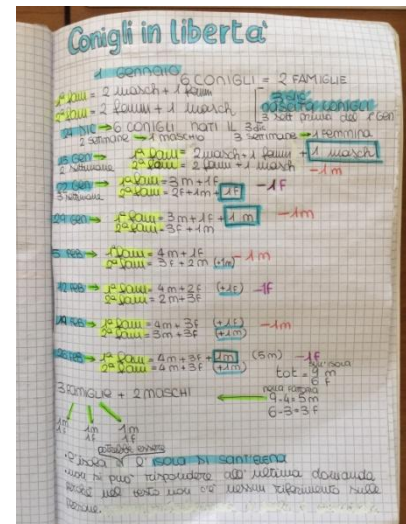 Conigli in libertà
1 GENNAIO 6 CONIGLI = 2 FAMIGLIE
1ª fam = 2 masch + 1 femm
2ª fam = 2 femm + 1 masch 3 sett prima del 1 Gen
DIC → 6 CONIGLI NATI IL 3 dic
2 settimane → 1 maschio 3 settimane → 1 femmina
GEN → 1ª fam = 2 masch + 1 femm + 1 masch
2 settimane 2ª fam = 2 femm + 1 masch -1m
22 GEN → 1ª fam = 3m + 1F -1F
3 settimane 2ª fam = 2F + 1m + 1F
29 GEN → 1ª fam = 3m + 1F + 1m -1m
2ª fam = 3F + 1m
5 FEB → 1ª fam = 4m + 1F -1m
2ª fam = 3F + 2m (+1m)
12 FEB → 1ª fam = 4m + 2F (+1F) -1F
2ª fam = 2m + 3F
FEB → 1ª fam = 4m + 3F (+1F) -1m
2ª fam = 3m + 3F (+1m)
FEB → 1ª fam = 4m + 3F + 1m (5m) -1F
2ª fam = 4m + 3F (+1m) sull'isola
tot = 9 m
6 F
3 FAMIGLIE + 2 MASCHI nella fattoria
9-4=5m
6-3=3F
1m 1m 1m
1F 1F 1F
potrebbe essere
L'isola è l'ISOLA DI SANT'ELENA
non si può rispondere all'ultima domanda
perché nel testo non c'è nessun riferimento sulle